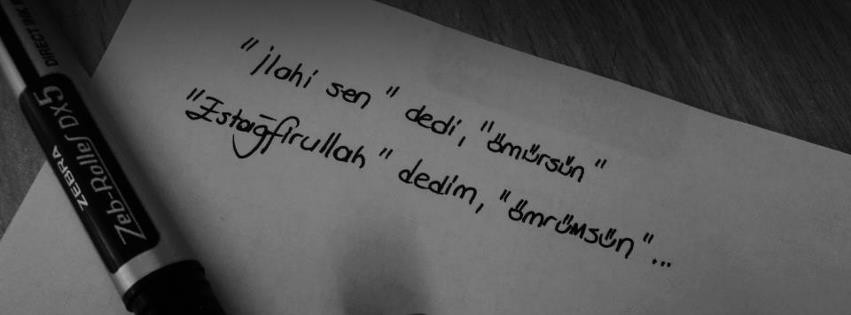 "İlahi sen" dedi, "ömürsün"
"Estağfirullah" dedim, "ömrümsün"...
DIRECT INK
ZEBRA
Zeb-Roller DX5